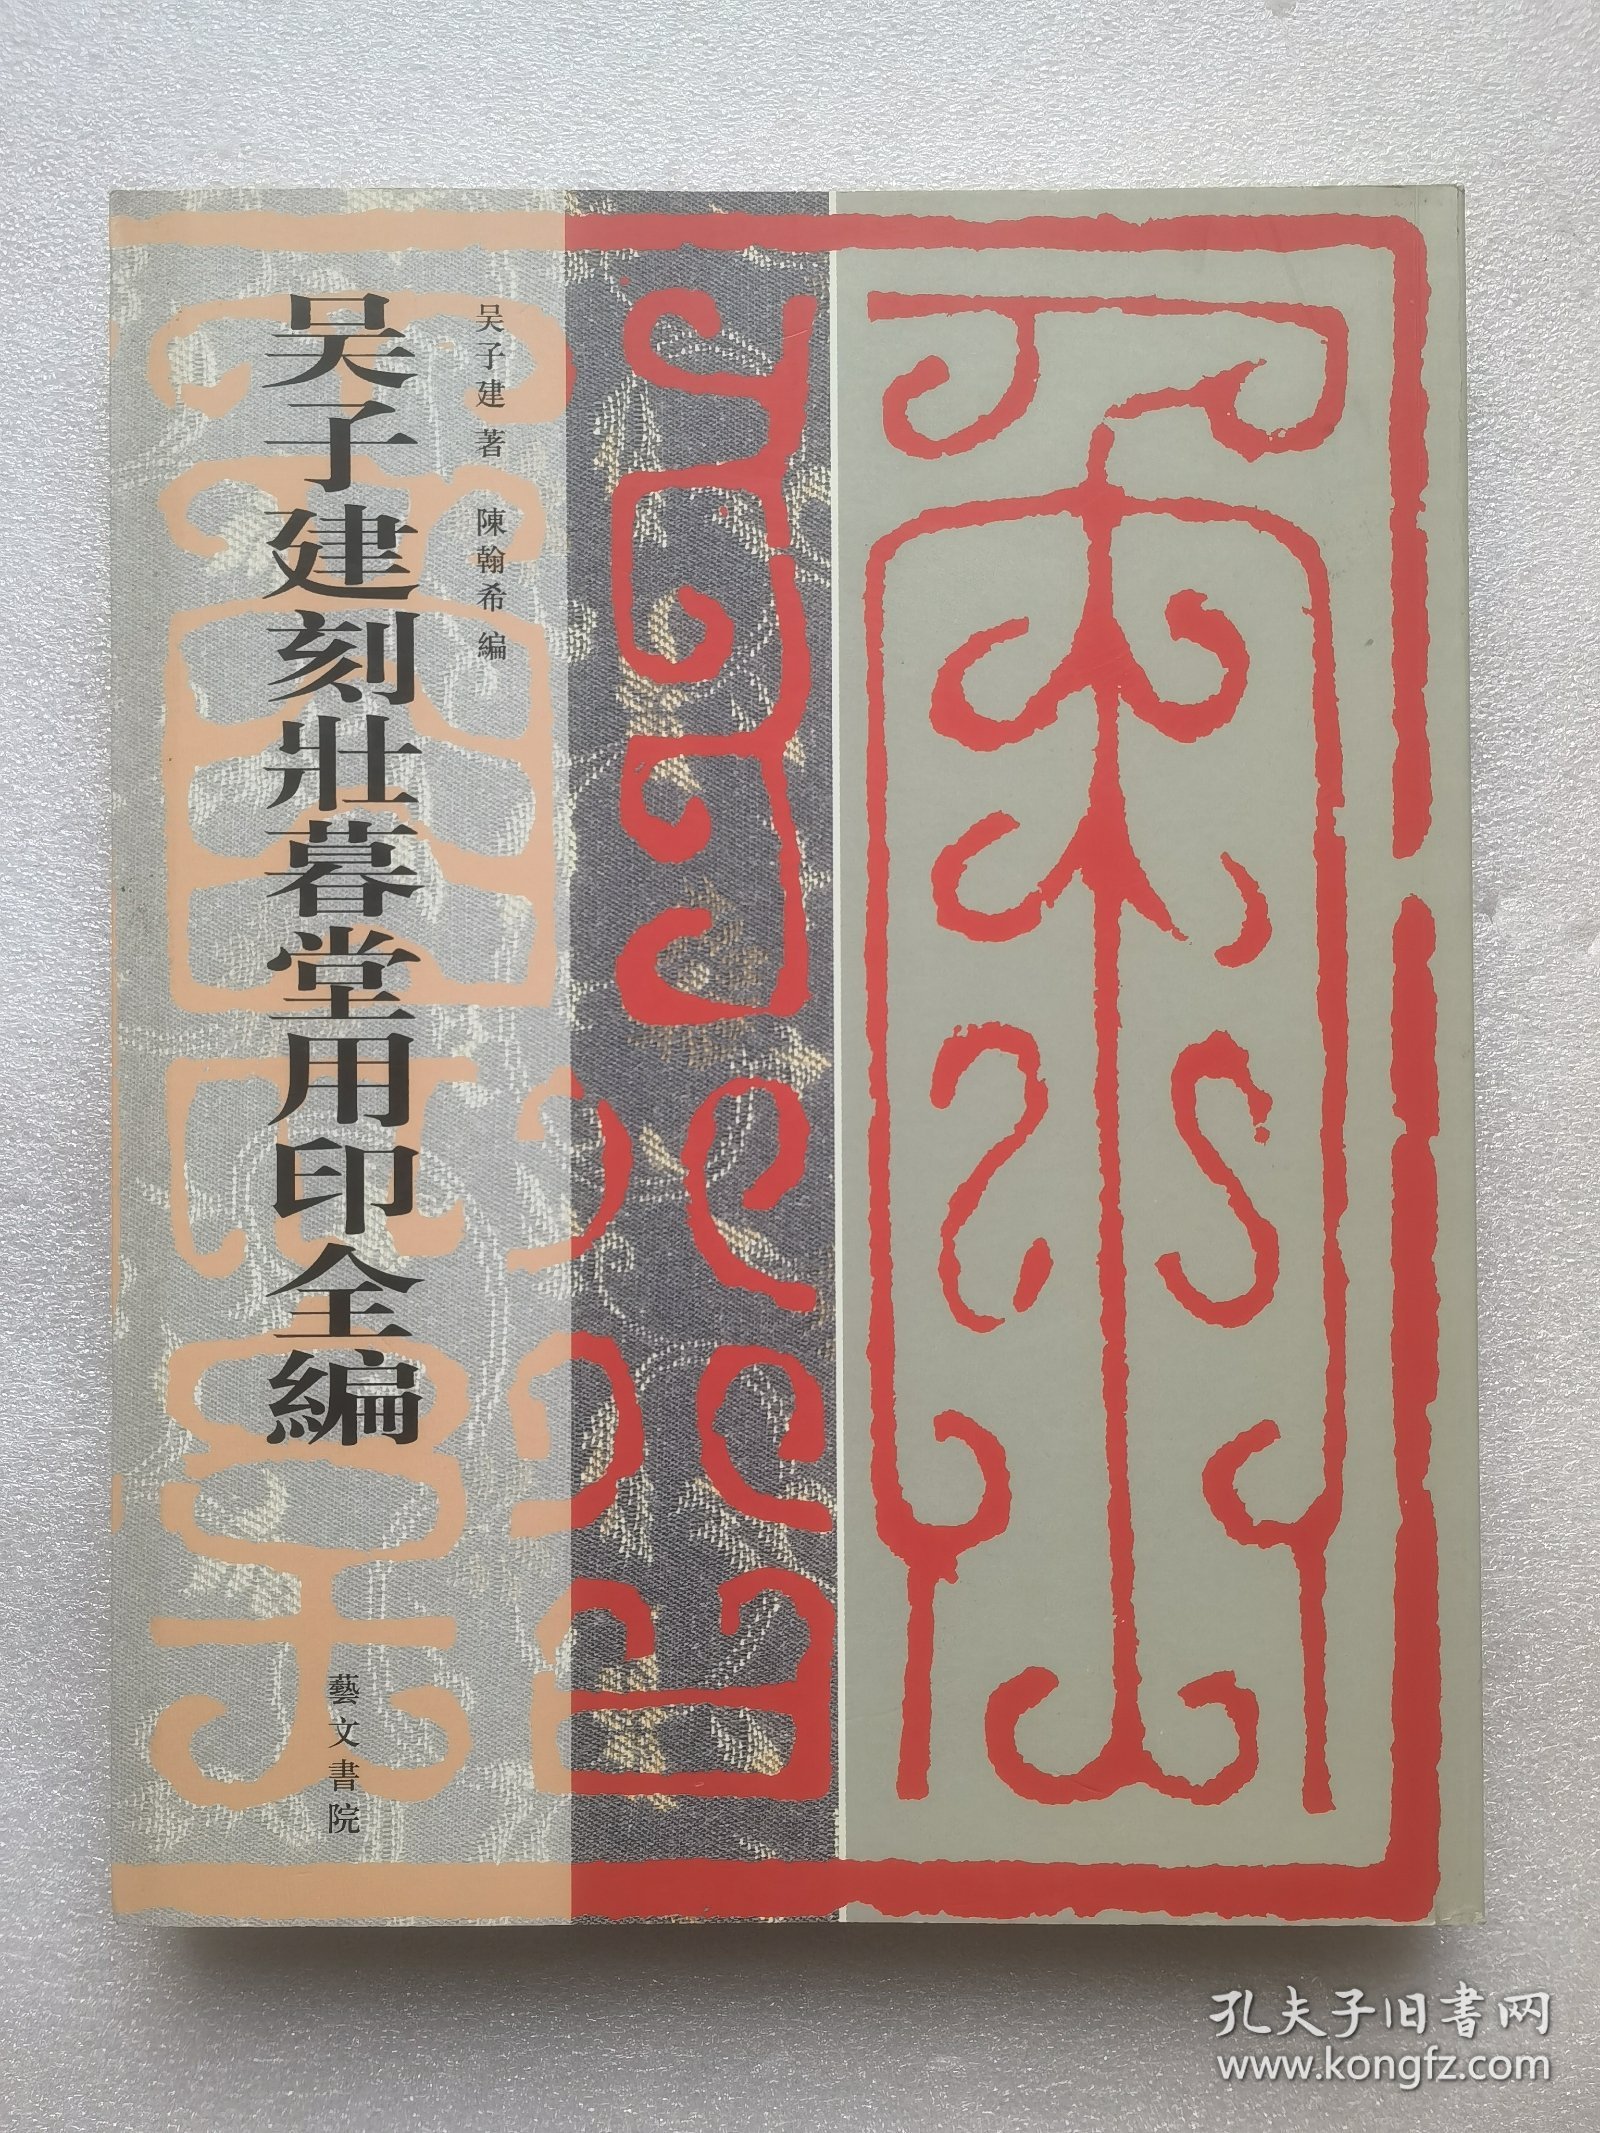 吴子建著 陳翰希編
吴子建刻壯暮堂用印全編
藝文書院
孔夫子旧書网
www.kongfz.com